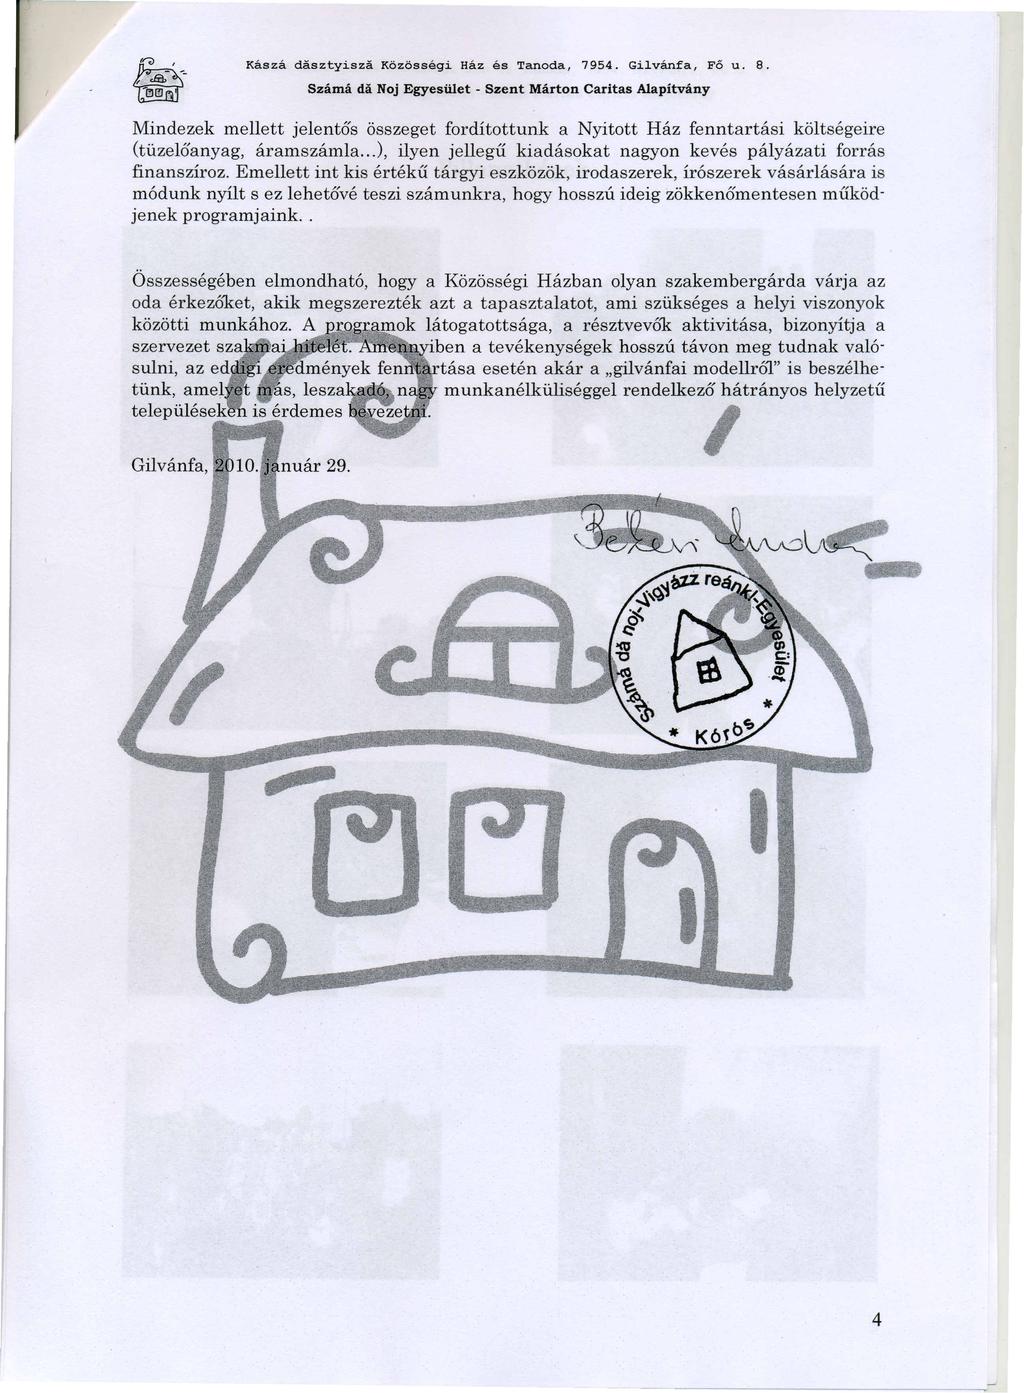 Kászá dăsztyisză Közösségi Ház és Tanoda, 7954. Gilvánfa, Fő u. 8.
Számá dă Noj Egyesület - Szent Márton Caritas Alapítvány
Mindezek mellett jelentős összeget fordítottunk a Nyitott Ház fenntartási költségeire
(tüzelőanyag, áramszámla...), ilyen jellegű kiadásokat nagyon kevés pályázati forrás
finanszíroz. Emellett int kis értékű tárgyi eszközök, irodaszerek, írószerek vásárlására is
módunk nyílt s ez lehetővé teszi számunkra, hogy hosszú ideig zökkenőmentesen működ-
jenek programjaink. .
Összességében elmondható, hogy a Közösségi Házban olyan szakembergárda várja az
oda érkezőket, akik megszerezték azt a tapasztalatot, ami szükséges a helyi viszonyok
közötti munkához. A programok látogatottsága, a résztvevők aktivitása, bizonyítja a
szervezet szakmai hitelét. Amennyiben a tevékenységek hosszú távon meg tudnak való-
sulni, az eddigi eredmények fenntartása esetén akár a „gilvánfai modellről” is beszélhe-
tünk, amelyet más, leszakadó, nagy munkanélküliséggel rendelkező hátrányos helyzetű
településeken is érdemes bevezetni.
Gilvánfa, 2010. január 29.
Számá dă noj-Vigyázz reánk!-Egyesület
* Kórós *
4